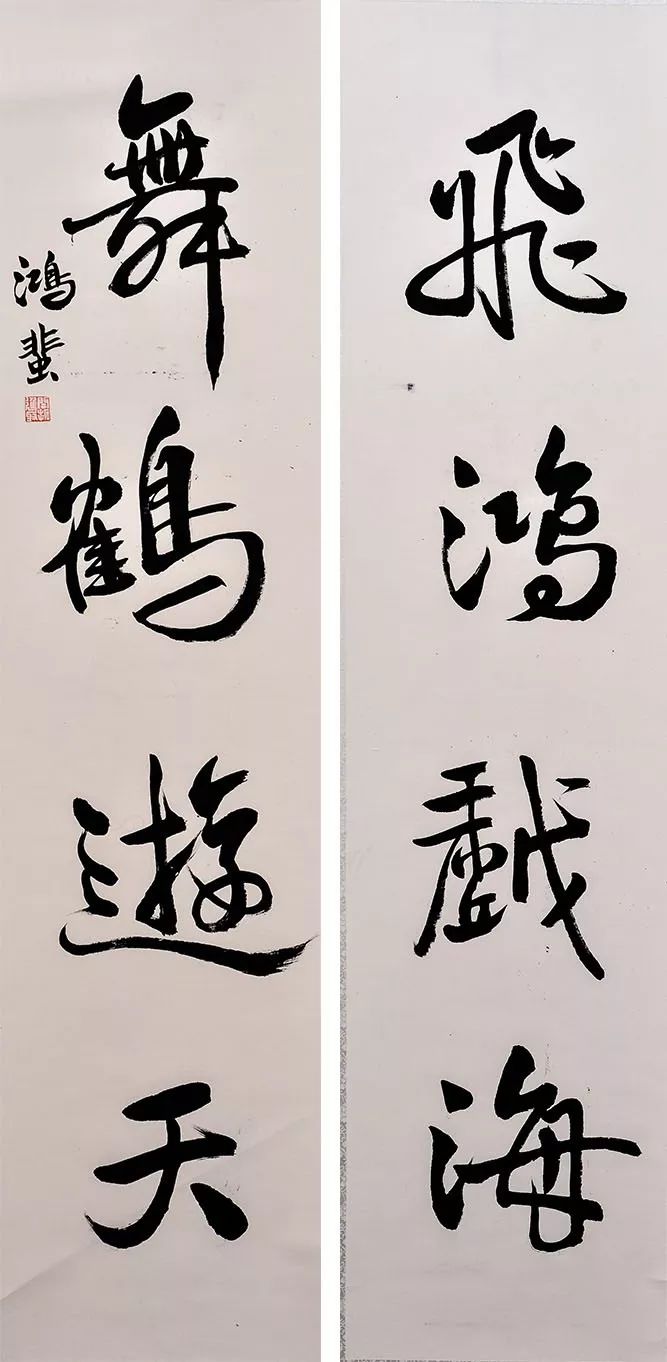 飛鴻戲海
舞鶴遊天
鴻蜚